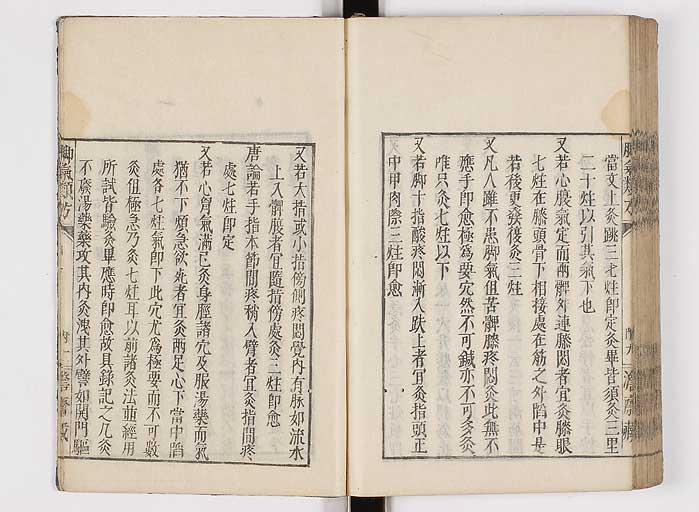 當文上灸跳三七炷即定灸畢皆須灸三里
二十炷以引其氣下也
又若心腹氣定而兩髀外連膝悶者宜灸膝眼
七炷在膝頭骨下相接處在筋之外陷中是
若後更發復灸三炷
又凡人雖不患脚氣但苦髀膝疼悶灸此無不
應手即愈極為要穴然不可鍼亦不可多灸
唯只灸七炷以下
又若脚十指酸疼悶漸入趺上者宜灸指頭正
中甲肉際三炷即愈
又若大指或小指傍側疼悶覺內有脉如流水
上入髀腹者宜隨指傍處灸三炷即愈
唐論若手指本節間疼稍入臂者宜灸指間疼
處七炷即定
又若心胷氣滿已灸身脛諸穴及服湯藥而氣
猶不下煩急欲死者宜灸兩足心下當中陷
處各七炷氣即下此穴尤為極要而不可數
灸但極急乃灸七炷耳以前諸灸法並經用
所試皆驗灸畢應時即愈故具錄記之凡灸
不廢湯藥藥攻其內灸洩其外譬如開門驅